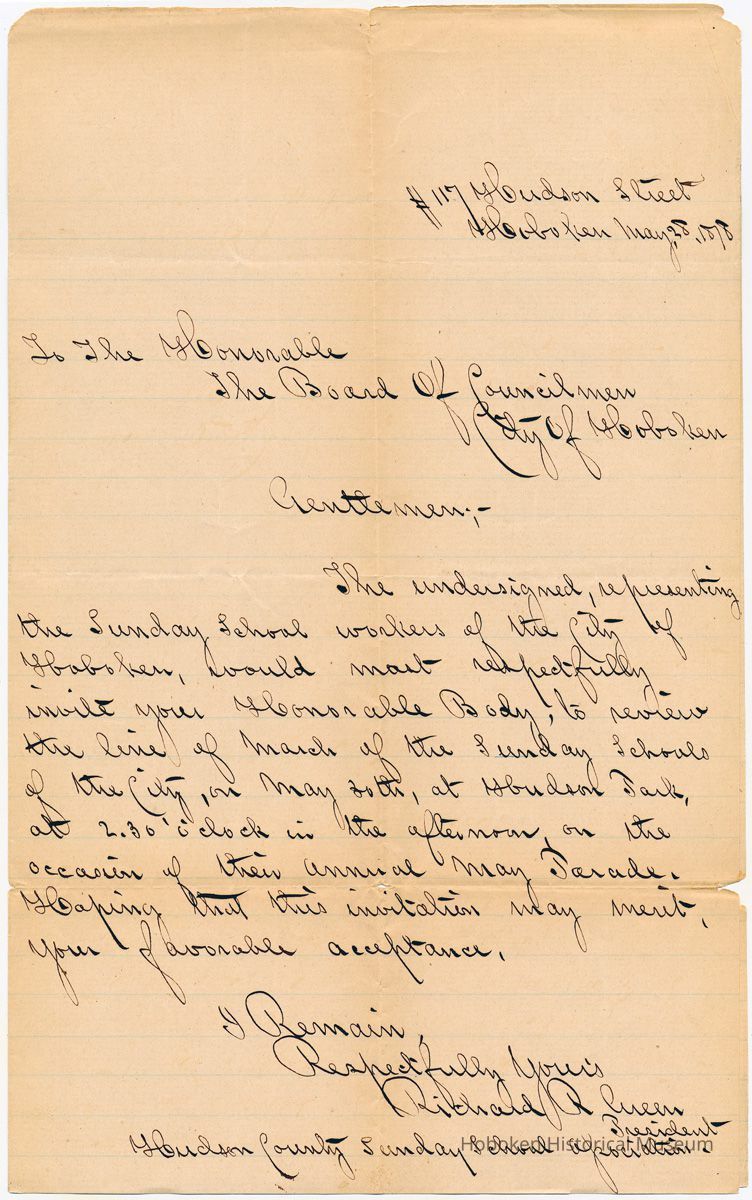 # 117 Hudson Street
Hoboken May, 28, 1878
To The Honorable
The Board Of Councilmen
City Of Hoboken
Gentlemen;-
The undersigned, representing
the Sunday School workers of the City of
Hoboken, would most respectfully
invite your Honorable Body, to review
the line of March of the Sunday Schools
of the City, on May 30th, at Hudson Park,
at 2.30 o'clock in the afternoon, on the
occasion of their annual May Parade.
Hoping that this invitation may merit,
your favorable acceptance,
I Remain,
Respectfully Yours
Richard R
President
Hudson County Sunday School Association.
Hoboken Historical Museum